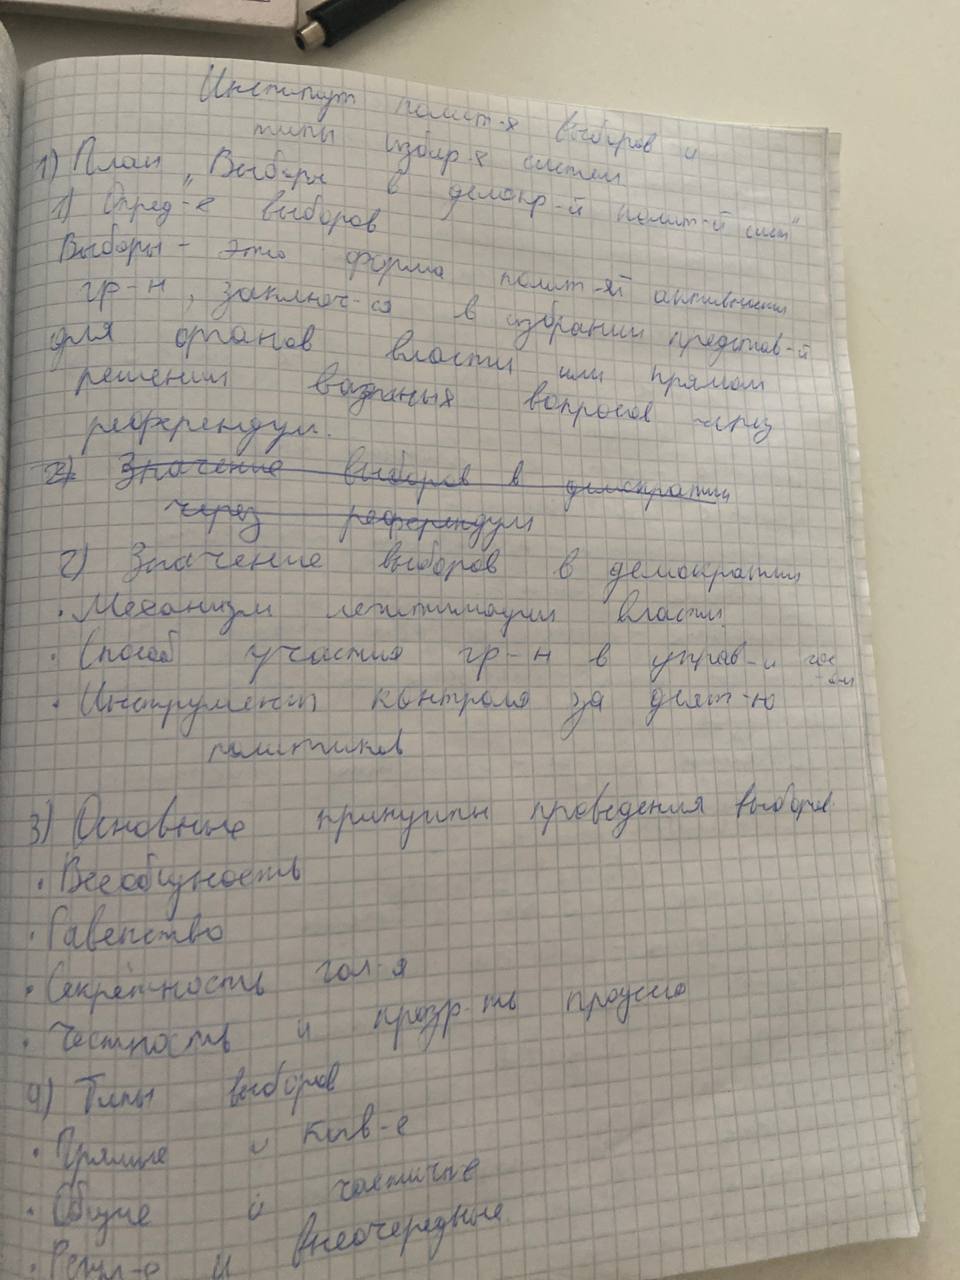 Институт полит-х выборов и
типы избир-х систем
1) План „Выборы в демокр-й полит-й сист"
1) Опред-е выборов
Выборы - это форма полит-ой активности
гр-н, заключ-ся в избрании представ-й
для органов власти или прямом
решении важных вопросов через
референдум.
2) Значение выборов в демократии
через референдум
2) Значение выборов в демократии
· Механизм легитимации власти
· Способ участия гр-н в управ-и гос
-вом
· Инструмент контроля за деят-ю
политиков
3) Основные принципы проведения выборов
· Всеобщность
· Равенство
· Секретность гол-я
· Честность и прозр-ть процесса
4) Типы выборов
· Прямые и косв-е
· Общие и частичные
· Регул-е и внеочередные